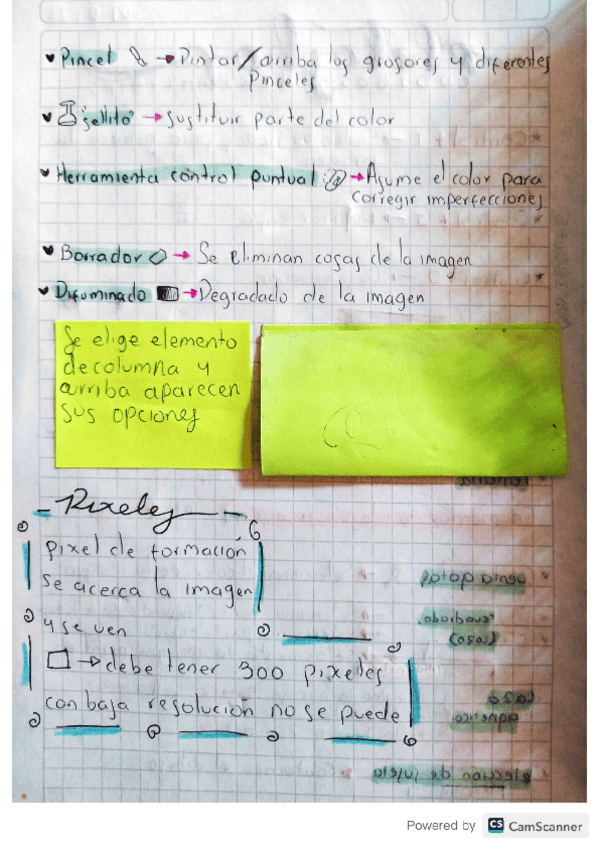 Pincel → Pintar/arriba los grosores y diferentes
pinceles
"sellito" → sustituir parte del color
Herramienta control puntual → Asume el color para
corregir imperfecciones
Borrador → Se eliminan cosas de la imagen
Difuminado → Degradado de la imagen
Se elige elemento
de columna y
arriba aparecen
sus opciones
- Pixeles -
pixel de formación
se acerca la imagen
y se ven
□ → debe tener 300 pixeles
con baja resolución no se puede
Powered by CS CamScanner